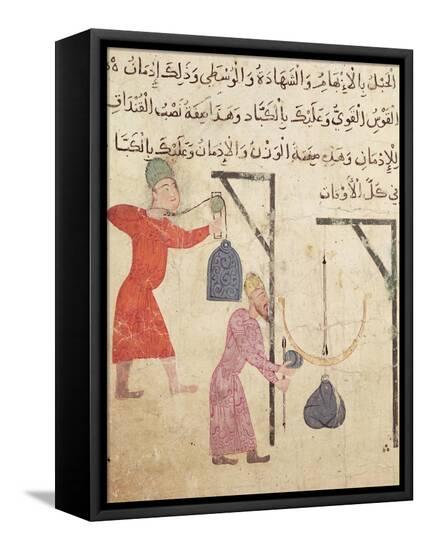 الحبل بالإبهام والشهادة والوسطى وذلك إدمان
القوس القوي وعليك بالكباد وهذا صفة نصب القنداق
للإدمان وهذه صفة الوزن والإدمان وعليك بالكبا
في كل الأوقات